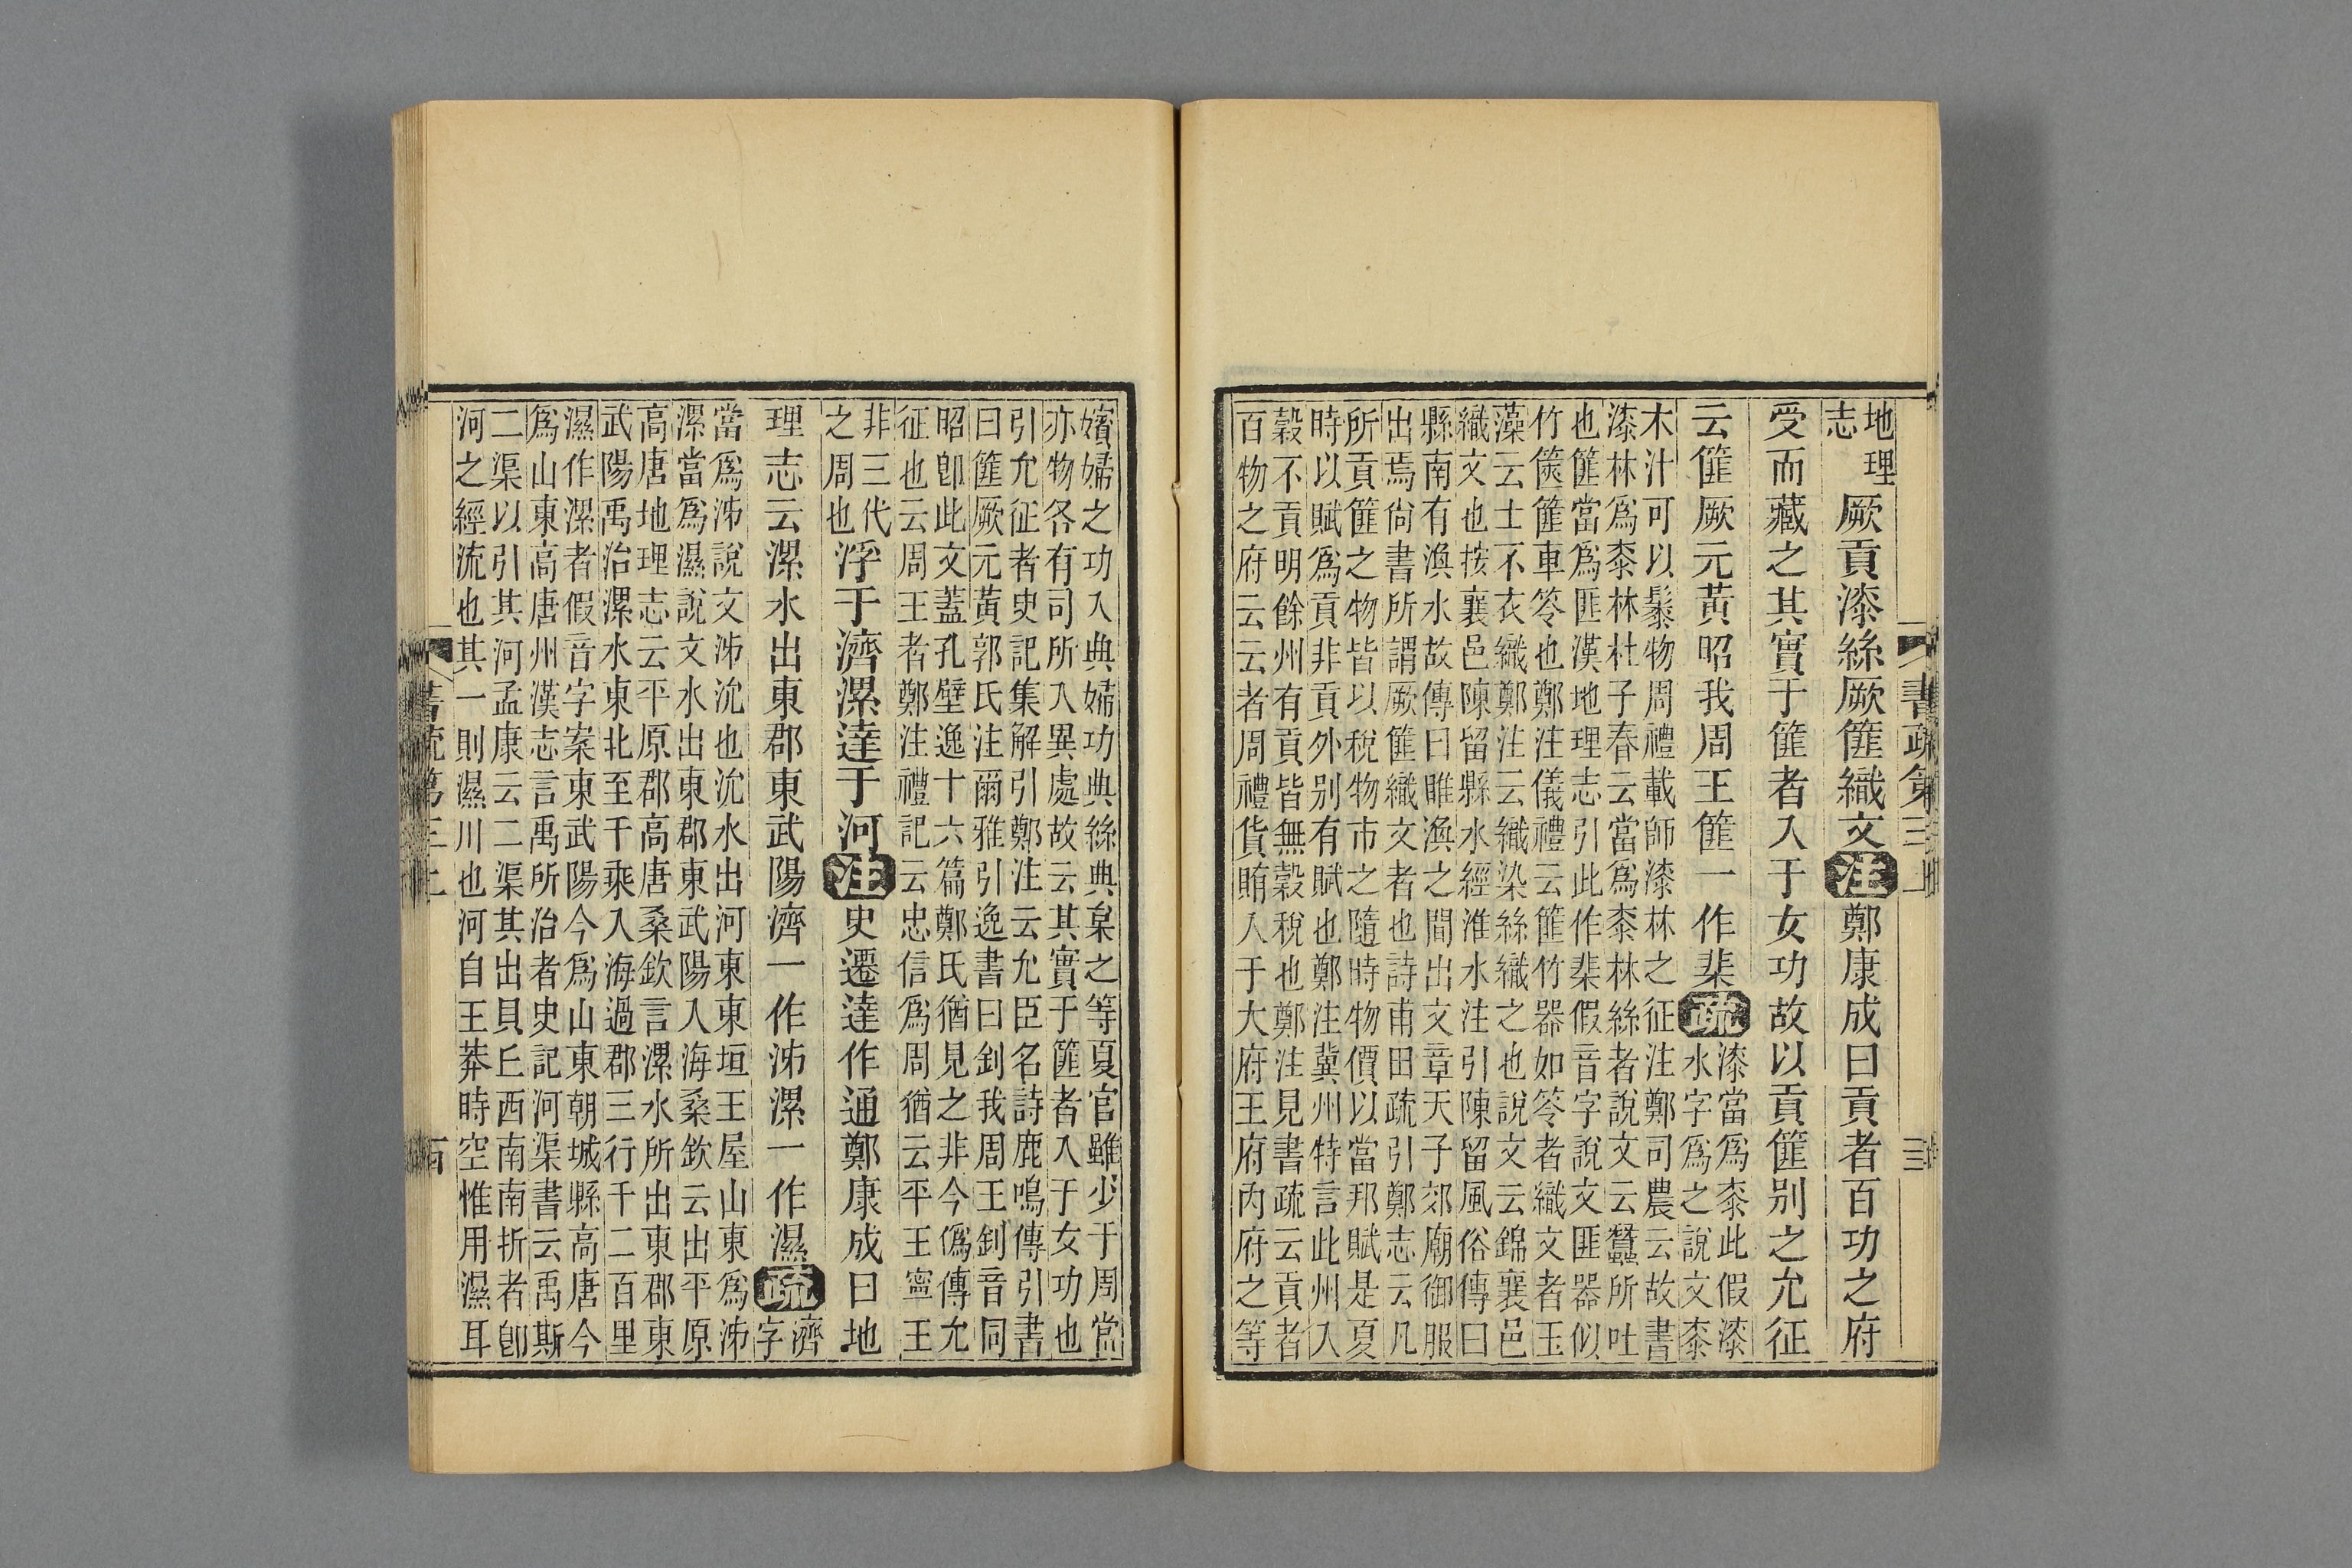 地理
志
厥貢漆絲厥篚織文注鄭康成曰貢者百功之府
受而藏之其實于篚者入于女功故以貢篚别之允征
云篚厥元黃昭我周王篚一作棐疏
漆當爲桼此假漆
水字爲之說文桼
木汁可以髹物周禮載師漆林之征注鄭司農云故書
漆林爲桼林杜子春云當爲桼林絲者說文云蠶所吐
也篚當爲匪漢地理志引此作棐假音字說文匪器似
竹篋篚車笭也鄭注儀禮云篚竹器如笭者織文者玉
藻云士不衣織鄭注云織染絲織之也說文云錦襄邑
織文也按襄邑陳留縣水經淮水注引陳留風俗傳曰
縣南有渙水故傳曰睢渙之間出文章天子郊廟御服
出焉尙書所謂厥篚織文者也詩甫田疏引鄭志云凡
所貢篚之物皆以稅物市之隨時物價以當邦賦是夏
時以賦爲貢非貢外别有賦也鄭注冀州特言此州入
穀不貢明餘州有貢皆無穀稅也鄭注見書疏云貢者
百物之府云云者周禮貨賄入于大府王府內府之等
書疏第三上
三
嬪婦之功入典婦功典絲典枲之等夏官雖少于周當
亦物各有司所入異處故云其實于篚者入于女功也
引允征者史記集解引鄭注云允臣名詩鹿鳴傳引書
曰篚厥元黃郭氏注爾雅引逸書曰釗我周王釗音同
昭卽此文蓋孔壁逸十六篇鄭氏猶見之非今僞傳允
征也云周王者鄭注禮記云忠信爲周猶云平王寧王
非三代
之周也
浮于濟漯達于河注史遷達作通鄭康成曰地
理志云漯水出東郡東武陽濟一作泲漯一作濕疏
濟
字
當爲泲說文泲沇也沇水出河東東垣王屋山東爲泲
漯當爲濕說文水出東郡東武陽入海桑欽云出平原
高唐地理志云平原郡高唐桑欽言漯水所出東郡東
武陽禹治漯水東北至千乘入海過郡三行千二百里
濕作漯者假音字案東武陽今爲山東朝城縣高唐今
爲山東高唐州漢志言禹所治者史記河渠書云禹斯
二渠以引其河孟康云二渠其出貝丘西南南折者卽
河之經流也其一則濕川也河自王莽時空惟用濕耳